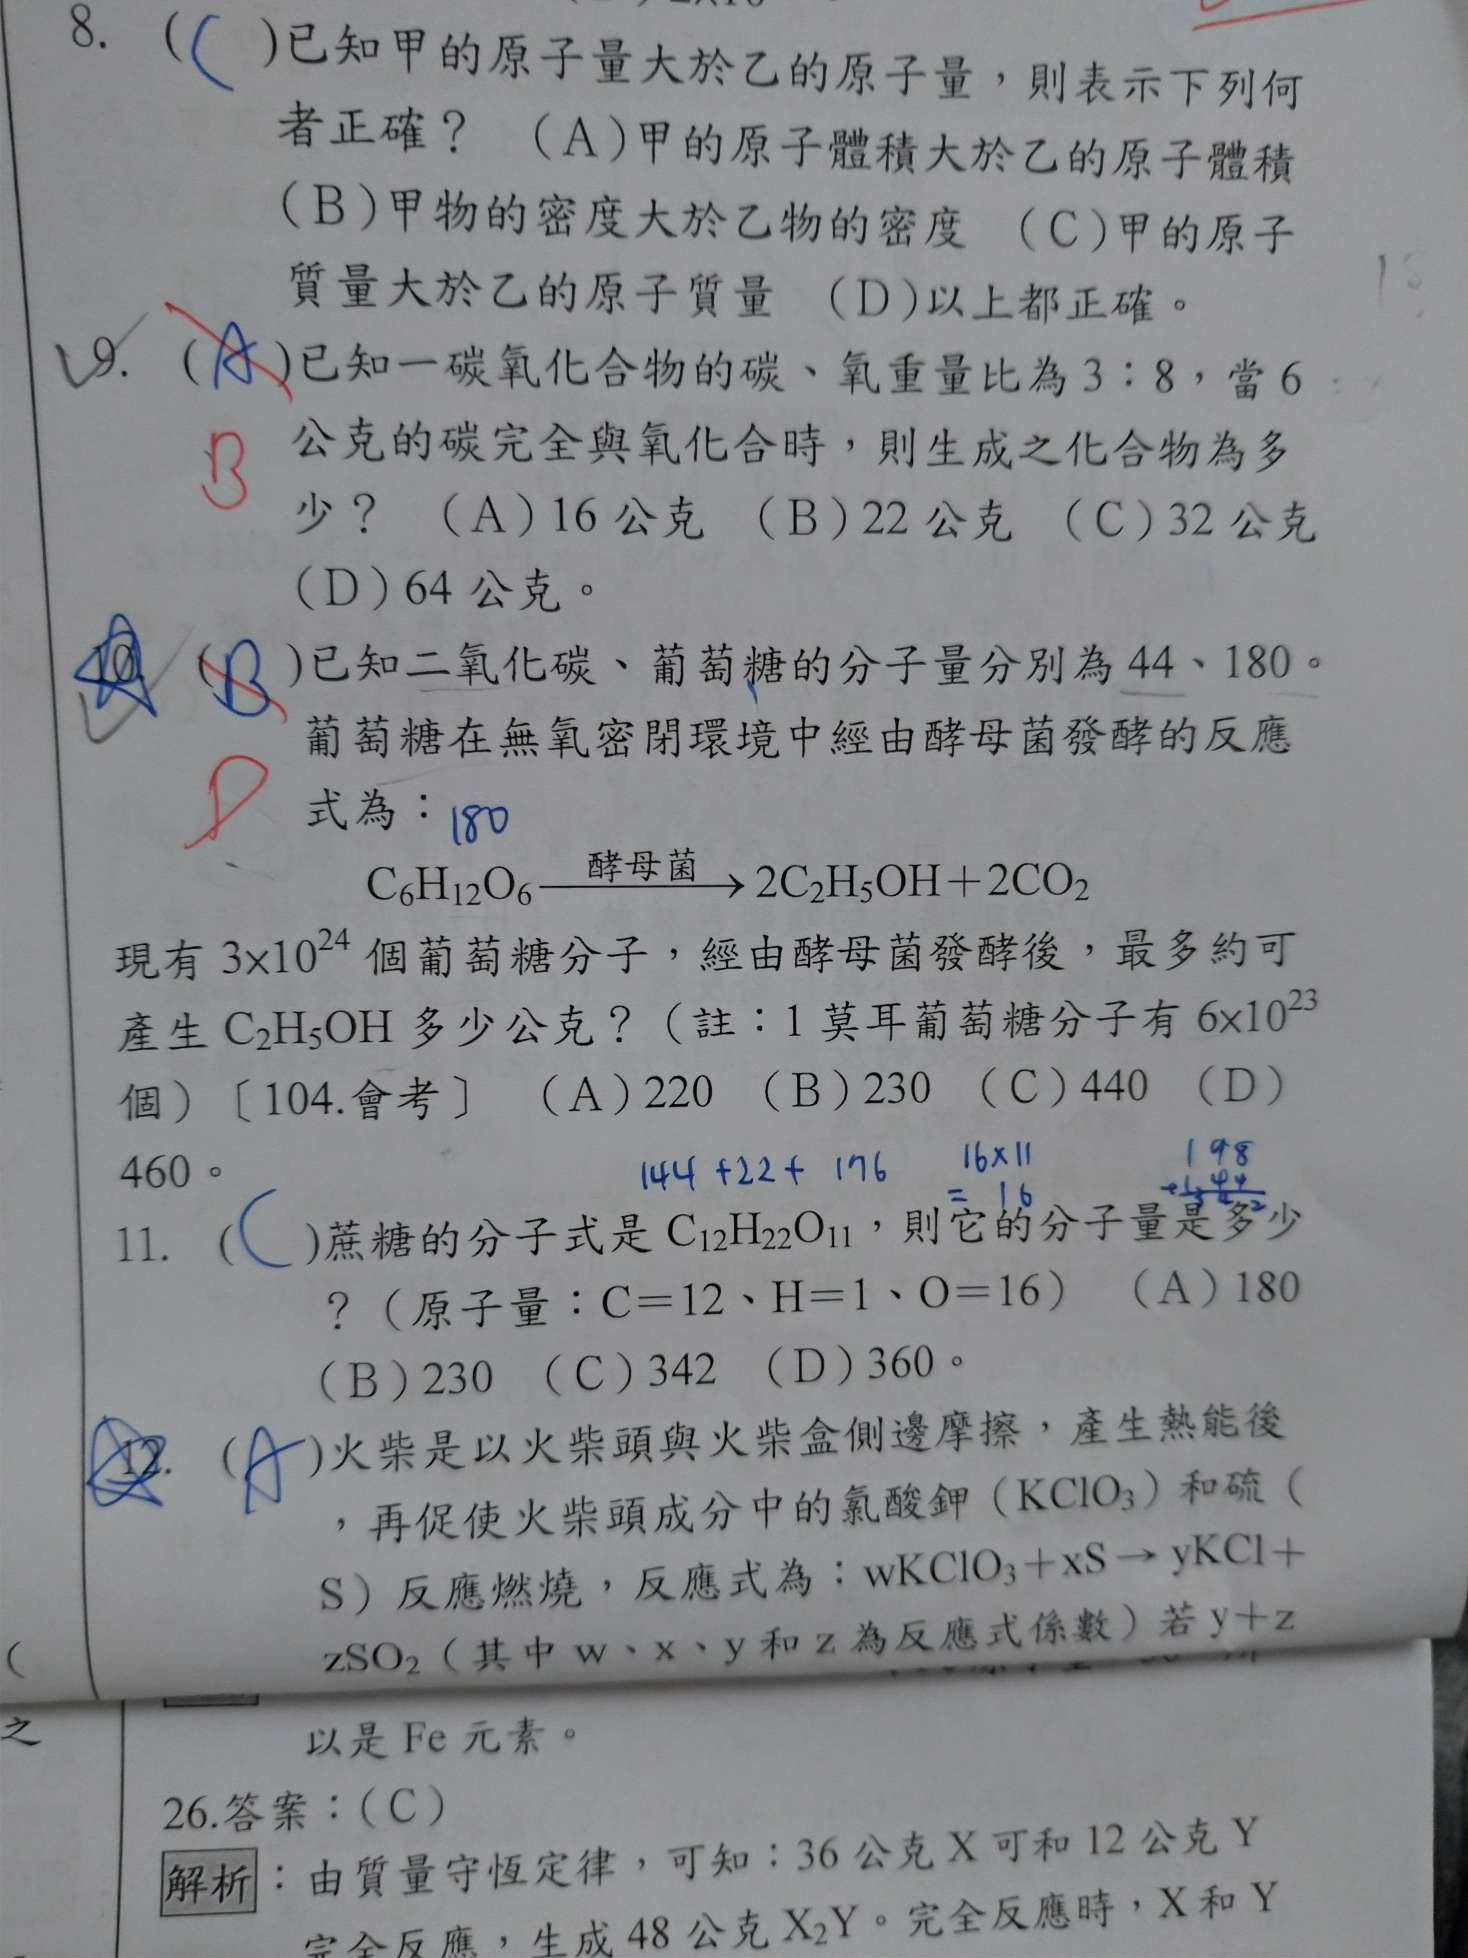 8. (C)已知甲的原子量大於乙的原子量，則表示下列何
者正確？ (A)甲的原子體積大於乙的原子體積
(B)甲物的密度大於乙物的密度 (C)甲的原子
質量大於乙的原子質量 (D)以上都正確。
9. (A)已知一碳氧化合物的碳、氧重量比為3：8，當6
B
公克的碳完全與氧化合時，則生成之化合物為多
少？ (A)16公克 (B)22公克 (C)32公克
(D)64公克。
10. (B)已知二氧化碳、葡萄糖的分子量分別為44、180。
葡萄糖在無氧密閉環境中經由酵母菌發酵的反應
D
式為：
180
C₆H₁₂O₆ 酵母菌→ 2C₂H₅OH＋2CO₂
現有3×10²⁴個葡萄糖分子，經由酵母菌發酵後，最多約可
產生C₂H₅OH多少公克？（註：1莫耳葡萄糖分子有6×10²³
個）〔104.會考〕 (A)220 (B)230 (C)440 (D)
460。
144+22+ 176 16×11
= 16
198
11. (C)蔗糖的分子式是C₁₂H₂₂O₁₁，則它的分子量是多少
？（原子量：C＝12、H＝1、O＝16） (A)180
(B)230 (C)342 (D)360。
12. (A)火柴是以火柴頭與火柴盒側邊摩擦，產生熱能後
，再促使火柴頭成分中的氯酸鉀（KClO₃）和硫（
S）反應燃燒，反應式為：wKClO₃＋xS→yKCl＋
zSO₂（其中w、x、y和z為反應式係數）若y＋z
（
之
以是Fe元素。
26.答案：(C)
解析：由質量守恆定律，可知：36公克X可和12公克Y
完全反應，生成48公克X₂Y。完全反應時，X和Y